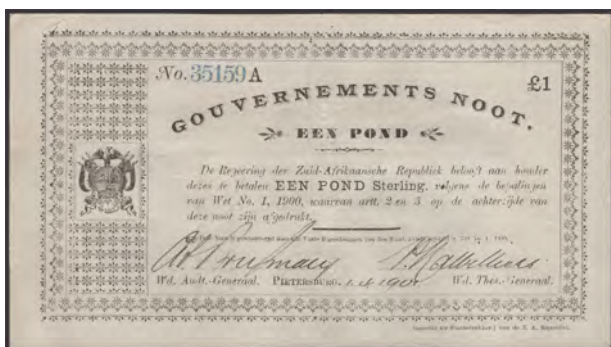 No. 35159 A £1
GOUVERNEMENTS NOOT.
EEN POND
De Regeering der Zuid-Afrikaansche Republiek belooft aan houder
dezes te betalen EEN POND Sterling, volgens de bepalingen
van Wet No. 1, 1900, waarvan artt. 2 en 3 op de achterzijde van
deze noot zijn afgedrukt.
Wd. Audt.-Generaal. PIETERSBURG, 1.4.1901 Wd. Thes.-Generaal.